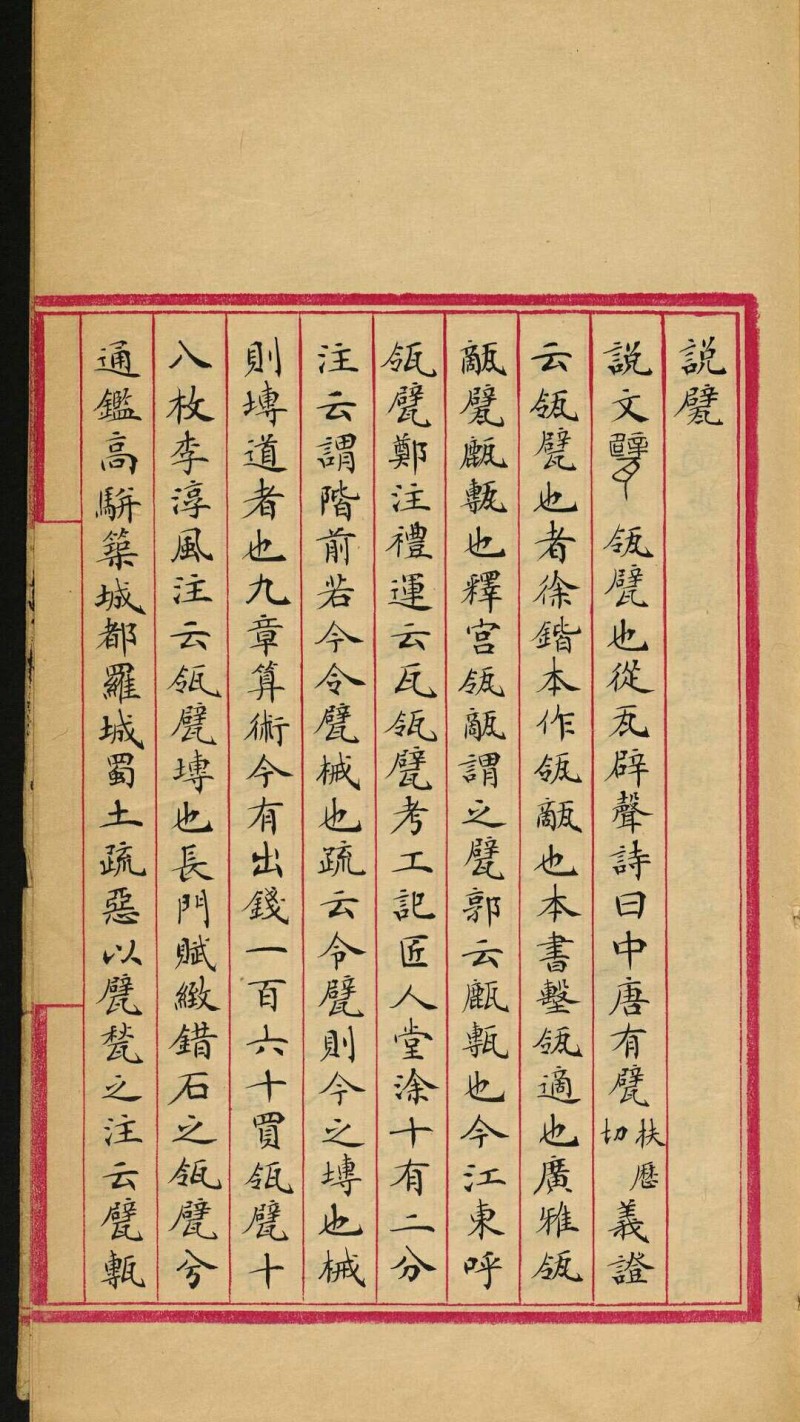 説甓
説文甓瓴甓也從瓦辟聲詩曰中唐有甓扶歷切義證
云瓴甓也者徐鍇本作瓴㼾也本書墼瓴適也廣雅瓴
㼾甓㼾甎也釋宮瓴㼾謂之甓郭云㼾甎也今江東呼
瓴甓鄭注禮運云瓦瓴甓考工記匠人堂涂十有二分
注云謂階前若今令甓械也疏云令甓則今之塼也械
則塼道者也九章算術今有出錢一百六十買瓴甓十
八枚李淳風注云瓴甓塼也長門賦緻錯石之瓴甓兮
通鑑高駢築城都羅城蜀土疏惡以甓甃之注云甓甎